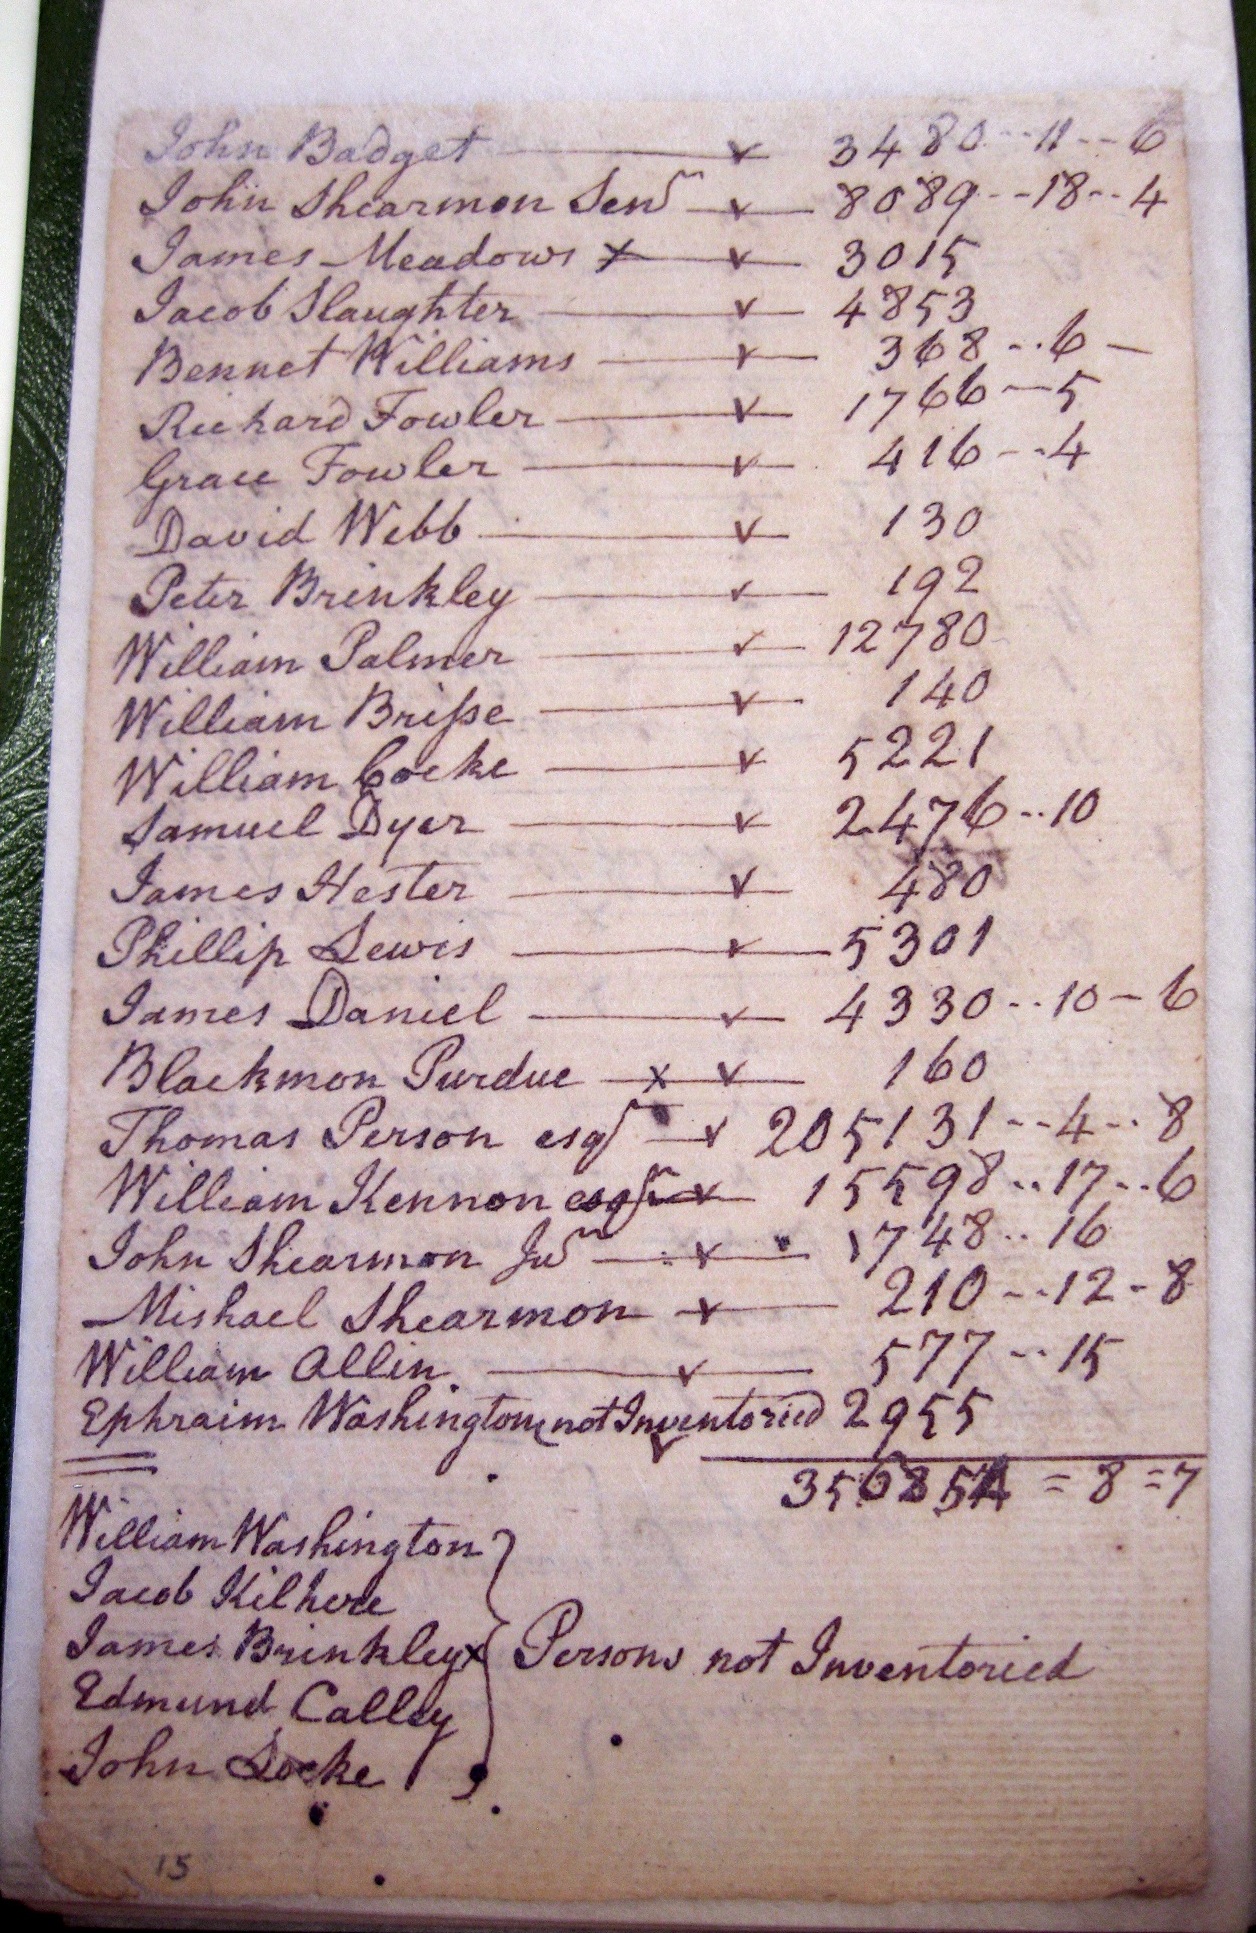 John Badget v 3480--11--6
John Shearmon Senr v 8089--18--4
James Meadows x v 3015
Jacob Slaughter v 4853
Bennet Williams v 368--6-
Richard Fowler v 1766--5
Grace Fowler v 416--4
David Webb v 130
Peter Brinkley v 192
William Palmer v 12780
William Briſse v 140
William Cocke v 5221
Samuel Dyer v 2476--10
James Hester v 480
Phillip Lewis v 5301
James Daniel v 4330--10-6
Blackmon Purdue x v 160
Thomas Person esqr v 205131--4--8
William Kennon esqr v 15598--17--6
John Shearmon Jur v 1748--16
Mishael Shearmon v 210--12-8
William Allin v 577--15
Ephraim Washington not Inventoried v 2955
= 8 = 7
William Washington
Jacob Kilhere
James Brinkley x Persons not Inventoried
Edmund Calley
John Locke
15